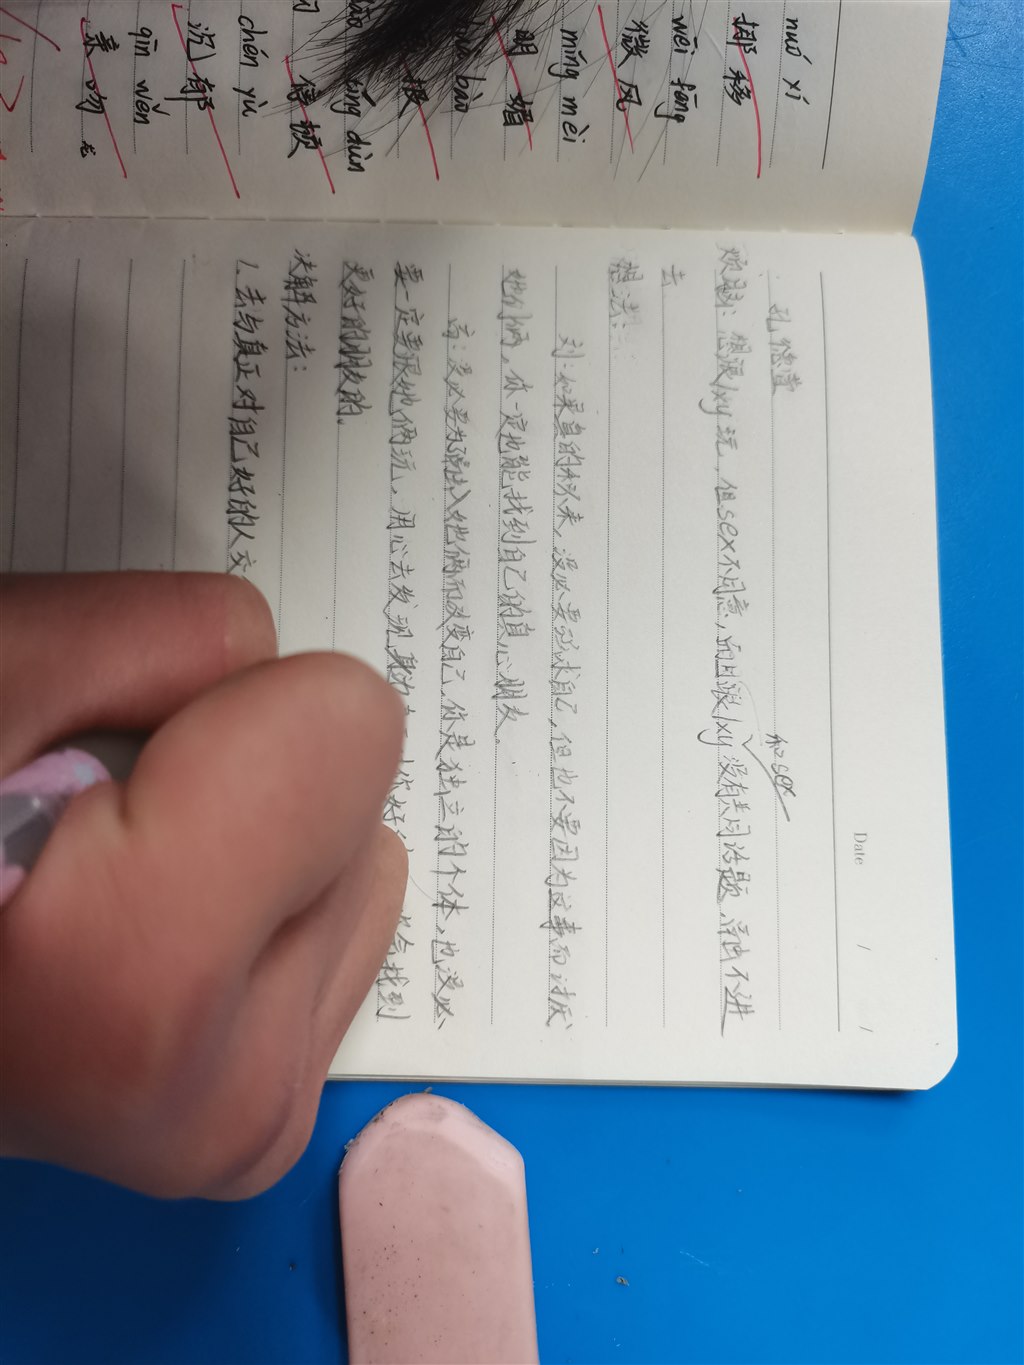 nuó xí
挪移
wēi fēng
微风
míng mèi
明媚
bào
报
dùn
停顿
chén yù
沉郁
qīn wěn
亲吻
Date / /
孔德萱
和sex
烦恼：想跟lxy玩，但sex不同意，而且跟lxy没有共同话题，浮出不进
去
想法：
刘：如果真的合不来，没必要强求自己，但也不要因为这事而讨厌
她们俩，你一定也能找到自己的真心朋友。
高：没必要为了融入她俩而改变自己，你是独立的个体，也没必
要一定要跟她俩玩，用心去发现身边 你好 会找到
更好的朋友的。
决解方法：
1.去与真正对自己好的人交